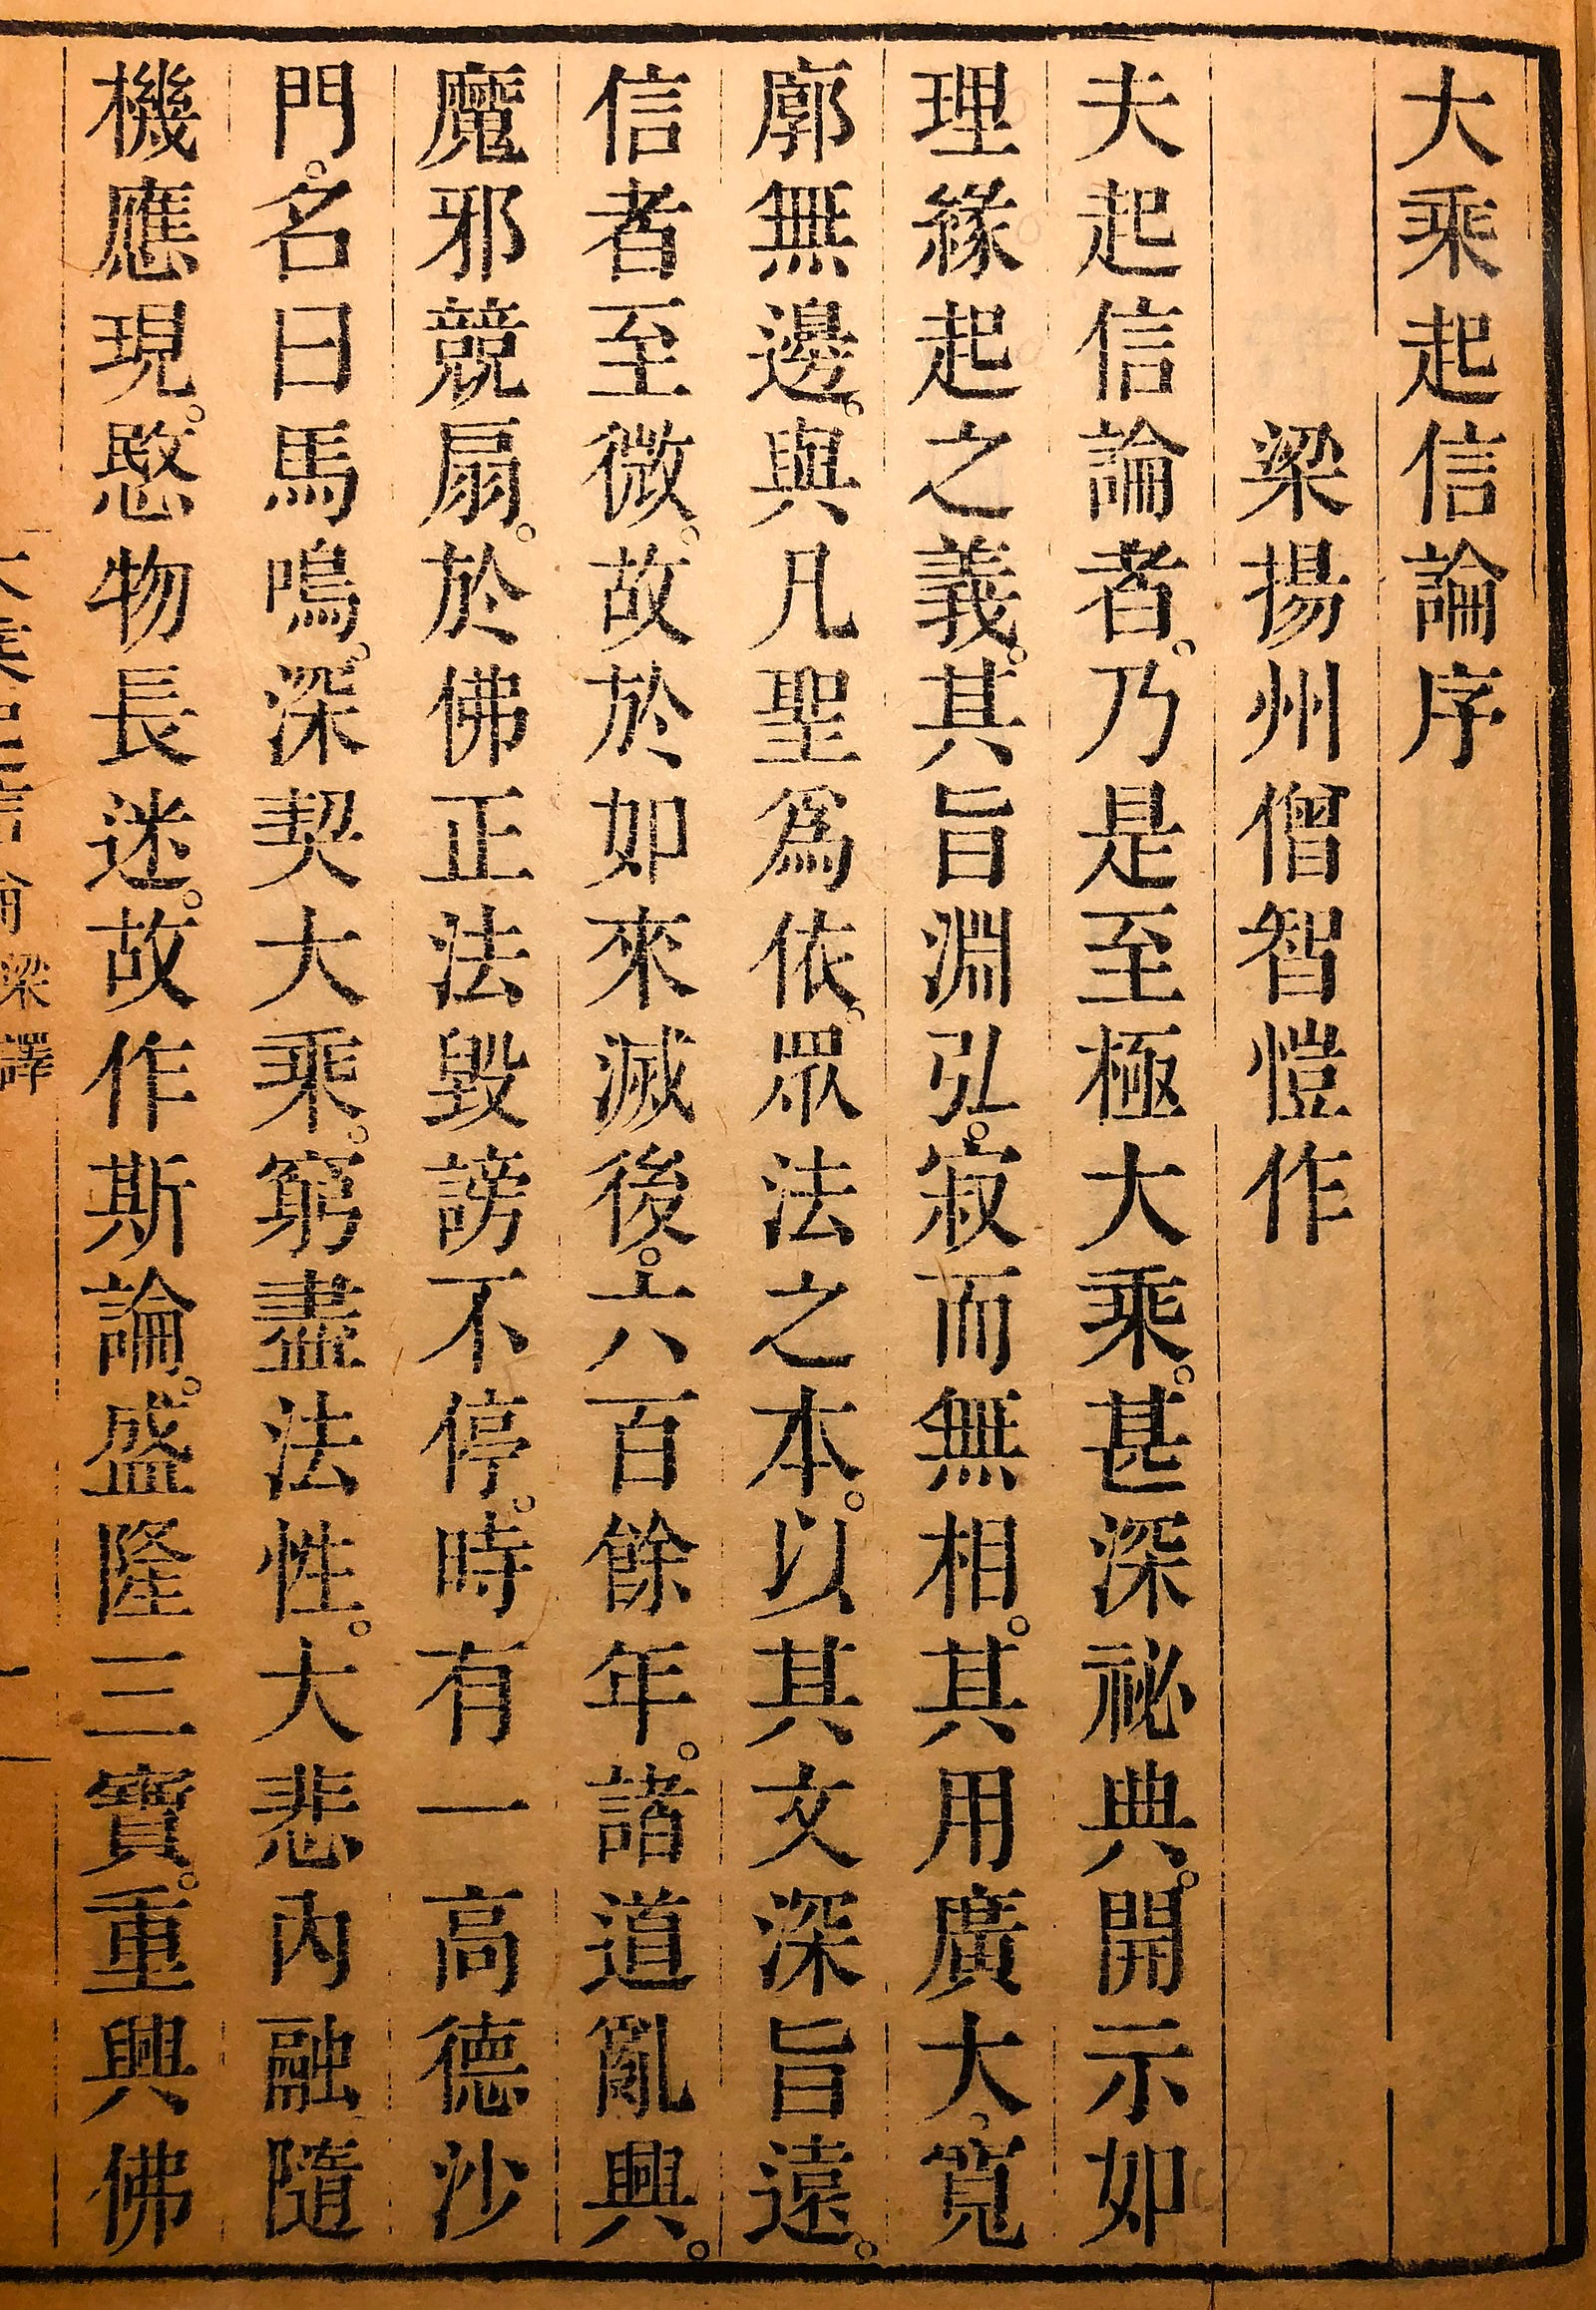 大乘起信論序
梁揚州僧智愷作
夫起信論者。乃是至極大乘。甚深祕典。開示如
理緣起之義。其旨淵弘。寂而無相。其用廣大。寬
廓無邊。與凡聖爲依。眾法之本。以其文深旨遠。
信者至微。故於如來滅後。六百餘年。諸道亂興。
魔邪競扇。於佛正法毀謗不停。時有一高德沙
門。名曰馬鳴。深契大乘。窮盡法性。大悲內融隨
機應現。愍物長迷。故作斯論。盛隆三寶。重興佛
梁譯